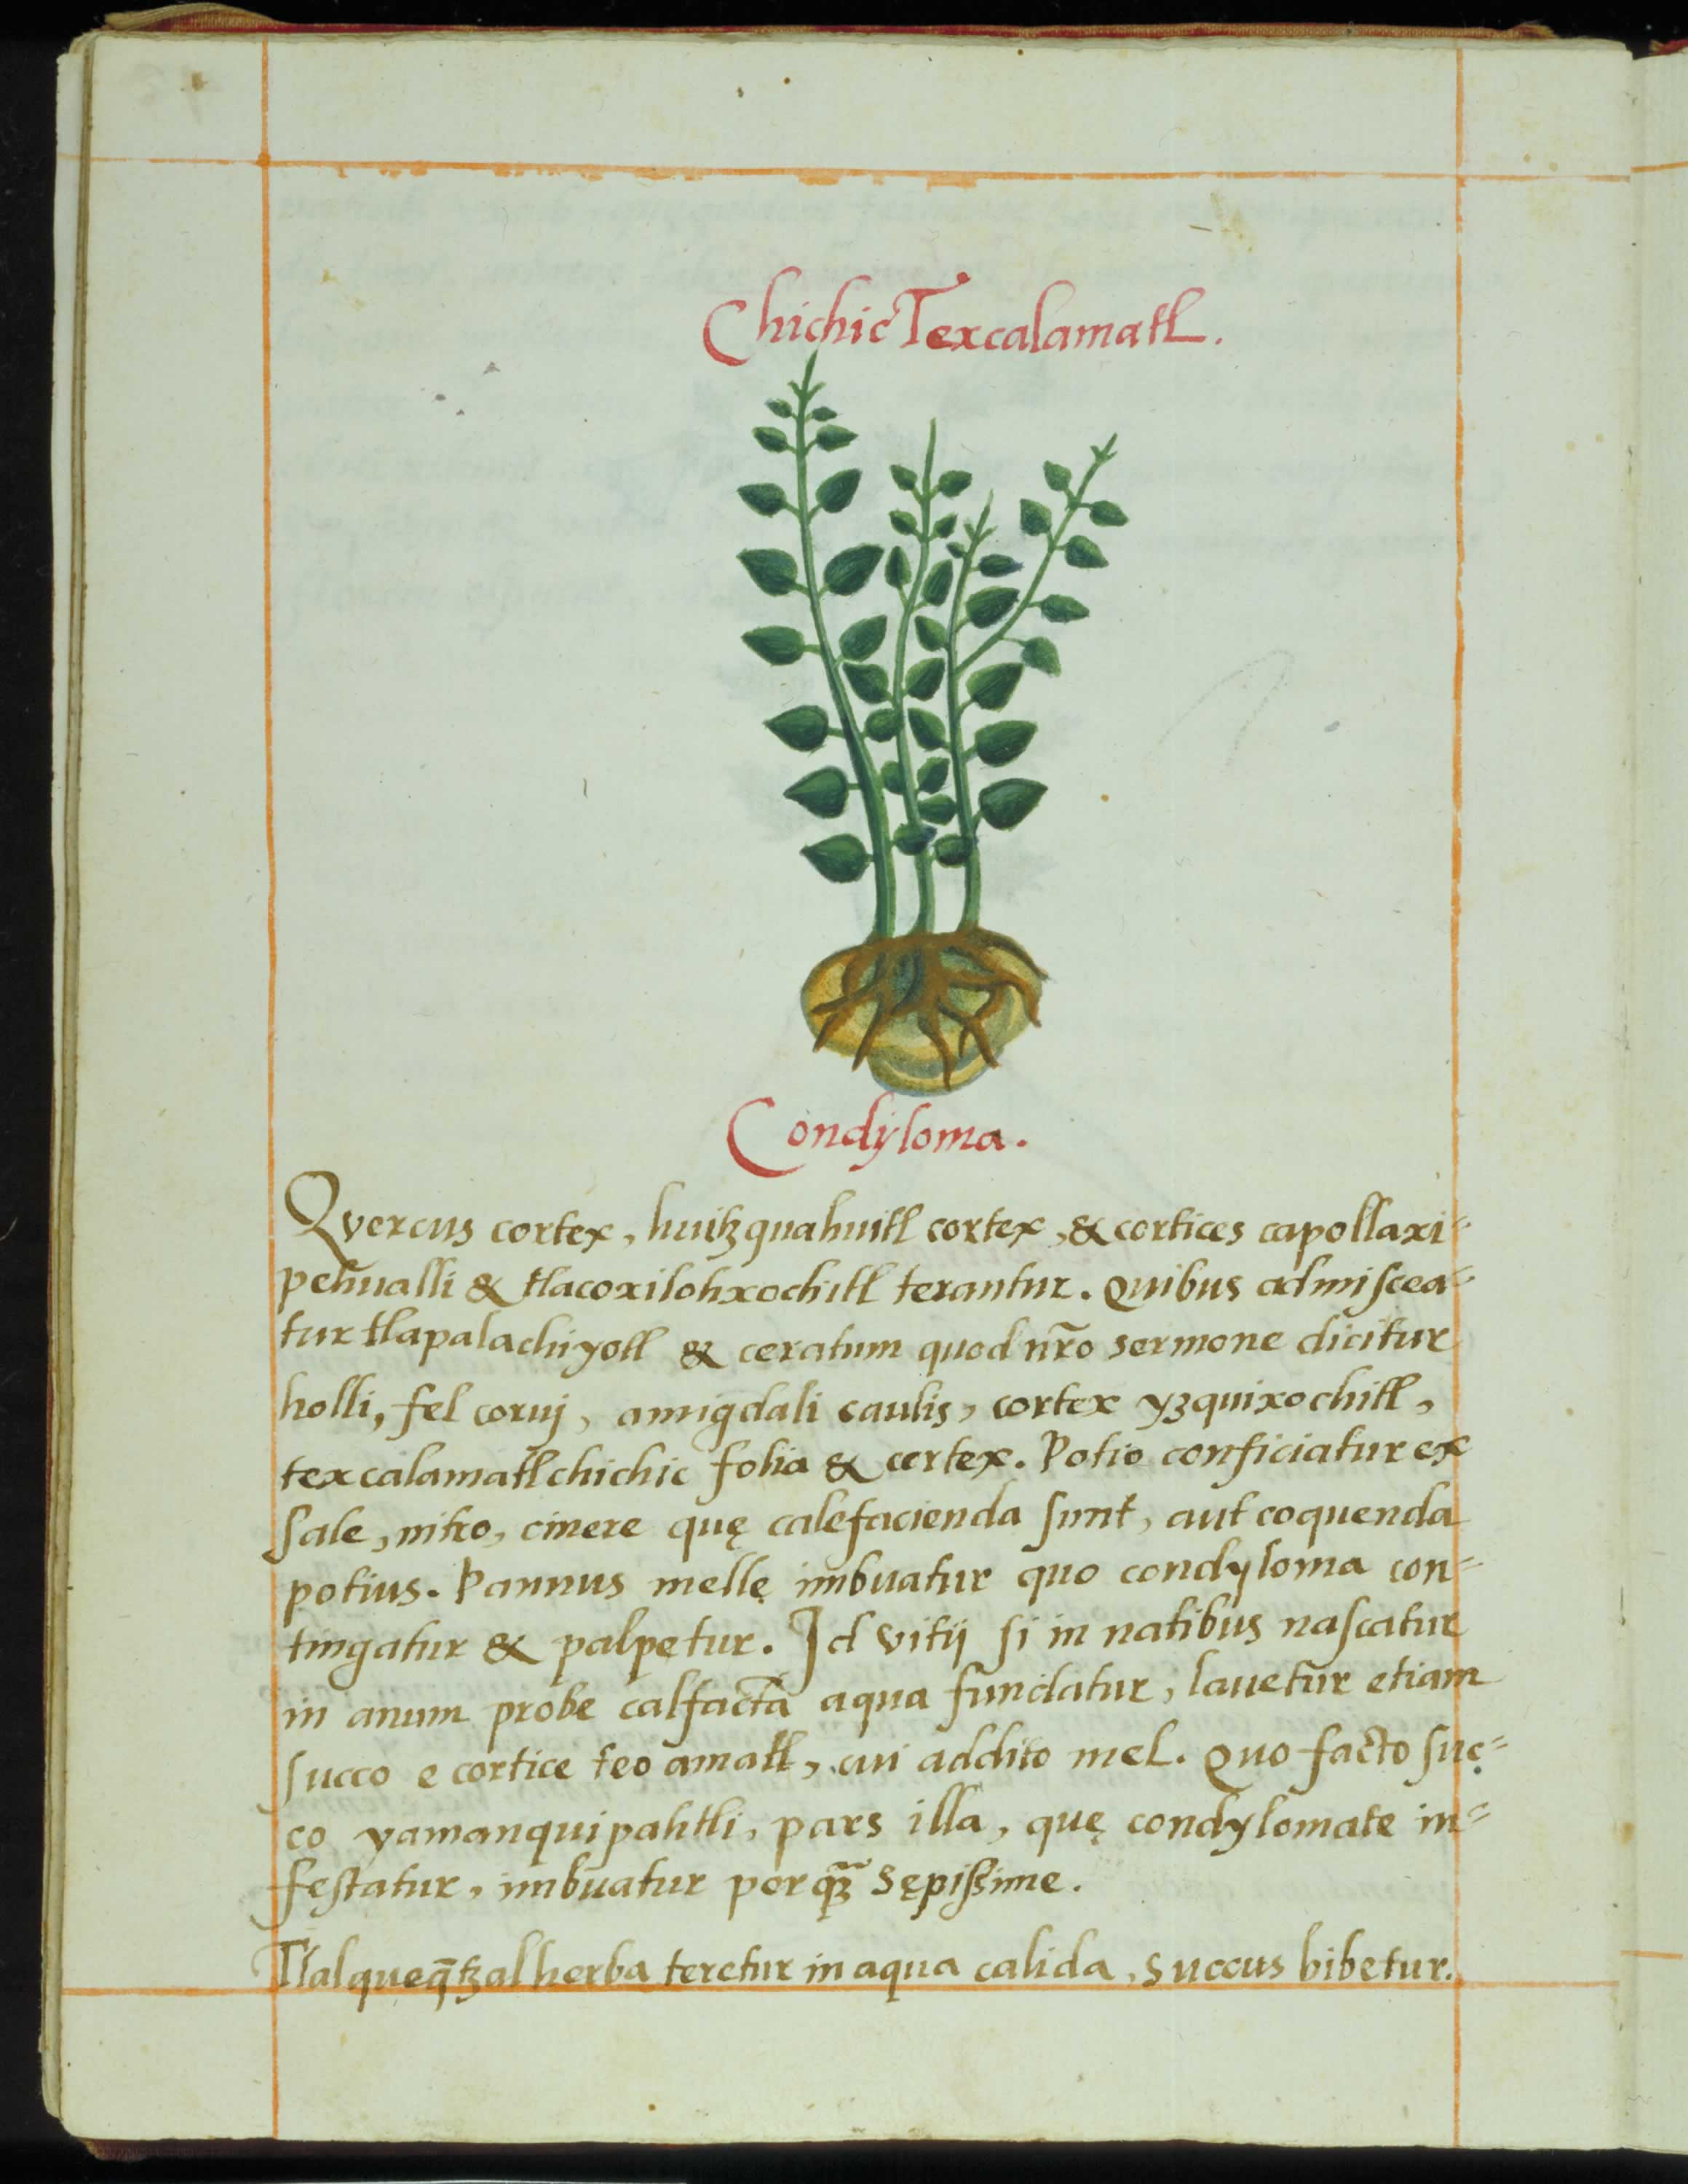 Chichic Texcalamatl.
Condÿloma.
Qvercus cortex, huitzquahuitl cortex, & cortices capollaxi=
pehualli & tlacoxilohxochitl terantur. Quibus admiscea=
tur tlapalachiyotl & ceratum quod nr̃o sermone dicitur
holli, fel coruj, amigdali caulis, cortex yzquixochitl,
texcalamatlchichic folia & cortex. Potio conficiatur ex
sale, nitro, cinere quę calefacienda sunt, aut coquenda
potius. Pannus mellę imbuatur quo condyloma con=
tingatur & palpetur. Id vitij si in natibus nascatur
in anum probe calfacta aqua fundatur, lauetur etiam
succo e cortice teoamatl, cui addito mel. Quo facto suc=
co yamanquipahtli, pars illa, quę condylomate in=
festatur, imbuatur porq̃ʒ sępissime.
Tlalqueq̄tzal herba teretur in aqua calida, succus bibetur.